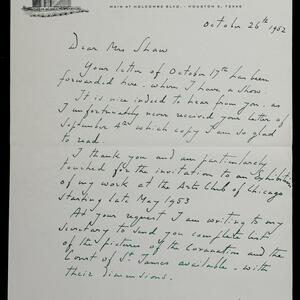 MAIN AT HOLCOMBE BLVD. · HOUSTON 5, TEXAS
October 26th 1952
Dear Mrs Shaw
Your letter of October 17th has been
forwarded here - where I have a show.
It is nice indeed to hear from you, as
I unfortunately never received your letter of
September 4th which copy I am so glad
to read.
I thank you and am particularly
touched for the invitation to an Exhibition
of my work at the Arts Club of Chicago
starting late May 1953
As your request I am writing to my
Secretary to send you complete list
of the pictures of the Coronation and the
Court of St James available - with
their dimensions.